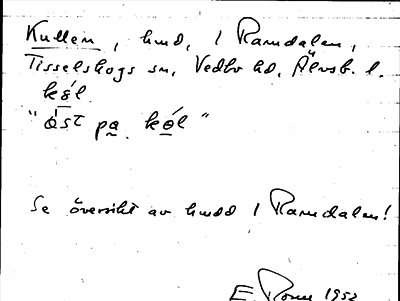 Kullen, hmd, i Ramdalen,
Tisselskogs sn, Vedbo hd, Älvsb. l.
kǿl
"ǿst pa kǿl"
Se översikt av hmdd i Ramdalen!
E. 1952